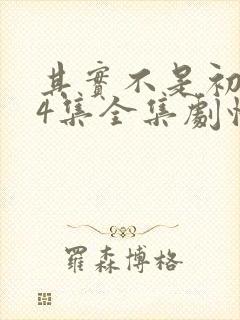 其實不是初
4集全集劇情
羅森博格